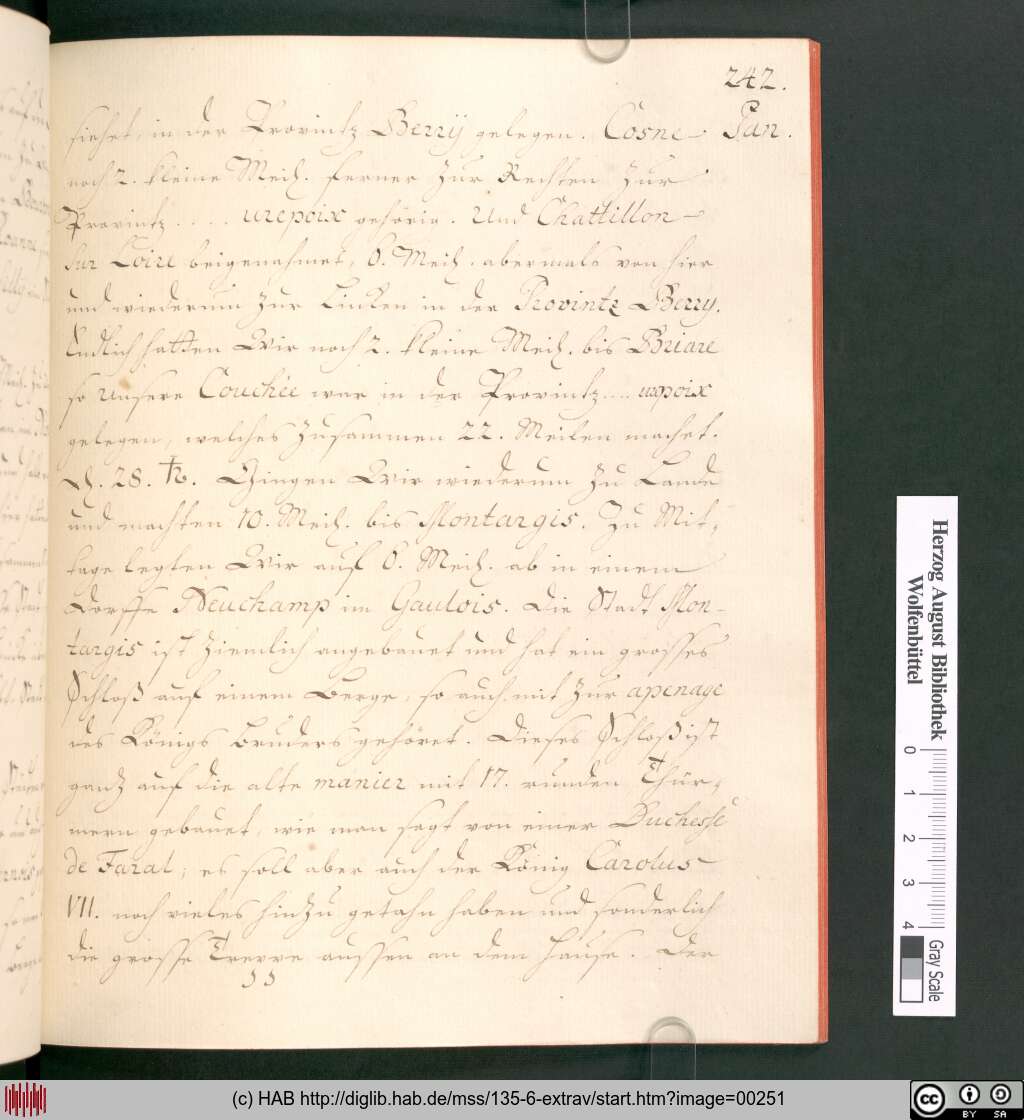 242.
siehet, in der Provintz Berry gelegen. Cosne Jan.
noch 2. kleine Meil. ferner zur Rechten zur
Provintz . . . . urepoix gehörig. Und Chattillon
sur Loire beigenahmet, 6. Meil. abermals von hier
und wiederum zur Lincken in der Provintz Berry.
Endlich hatten Wir noch 2. kleine Meil. bis Briare
so unsere Couchée war in der Provintz .... urepoix
gelegen, welches zusammen 22. Meilen machet.
D. 28. ♄. Gingen Wir wiederum zu Lande
und machten 10. Meil. bis Montargis. Zu Mit-
tage legten Wir auf 6. Meil. ab in einem
Dorffe Neuchamp im Gaulois. Die Stadt Mon-
targis ist ziemlich angebauet und hat ein grosses
Schloß auf einem Berge, so auch mit zur apenage
des Königs Bruders gehöret. Dieses Schloß ist
ganz auf die alte manier mit 17. runden Thür-
mern gebauet, wie man sagt von einer Duchesse
de Faral; es soll aber auch der König Carolus
VII. noch vieles hinzu getahn haben und sonderlich
die grosse Treppe aussen an dem Hause. Der
Herzog August Bibliothek
Wolfenbüttel
0 1 2 3 4
Gray Scale
(c) HAB http://diglib.hab.de/mss/135-6-extrav/start.htm?image=00251
cc BY SA